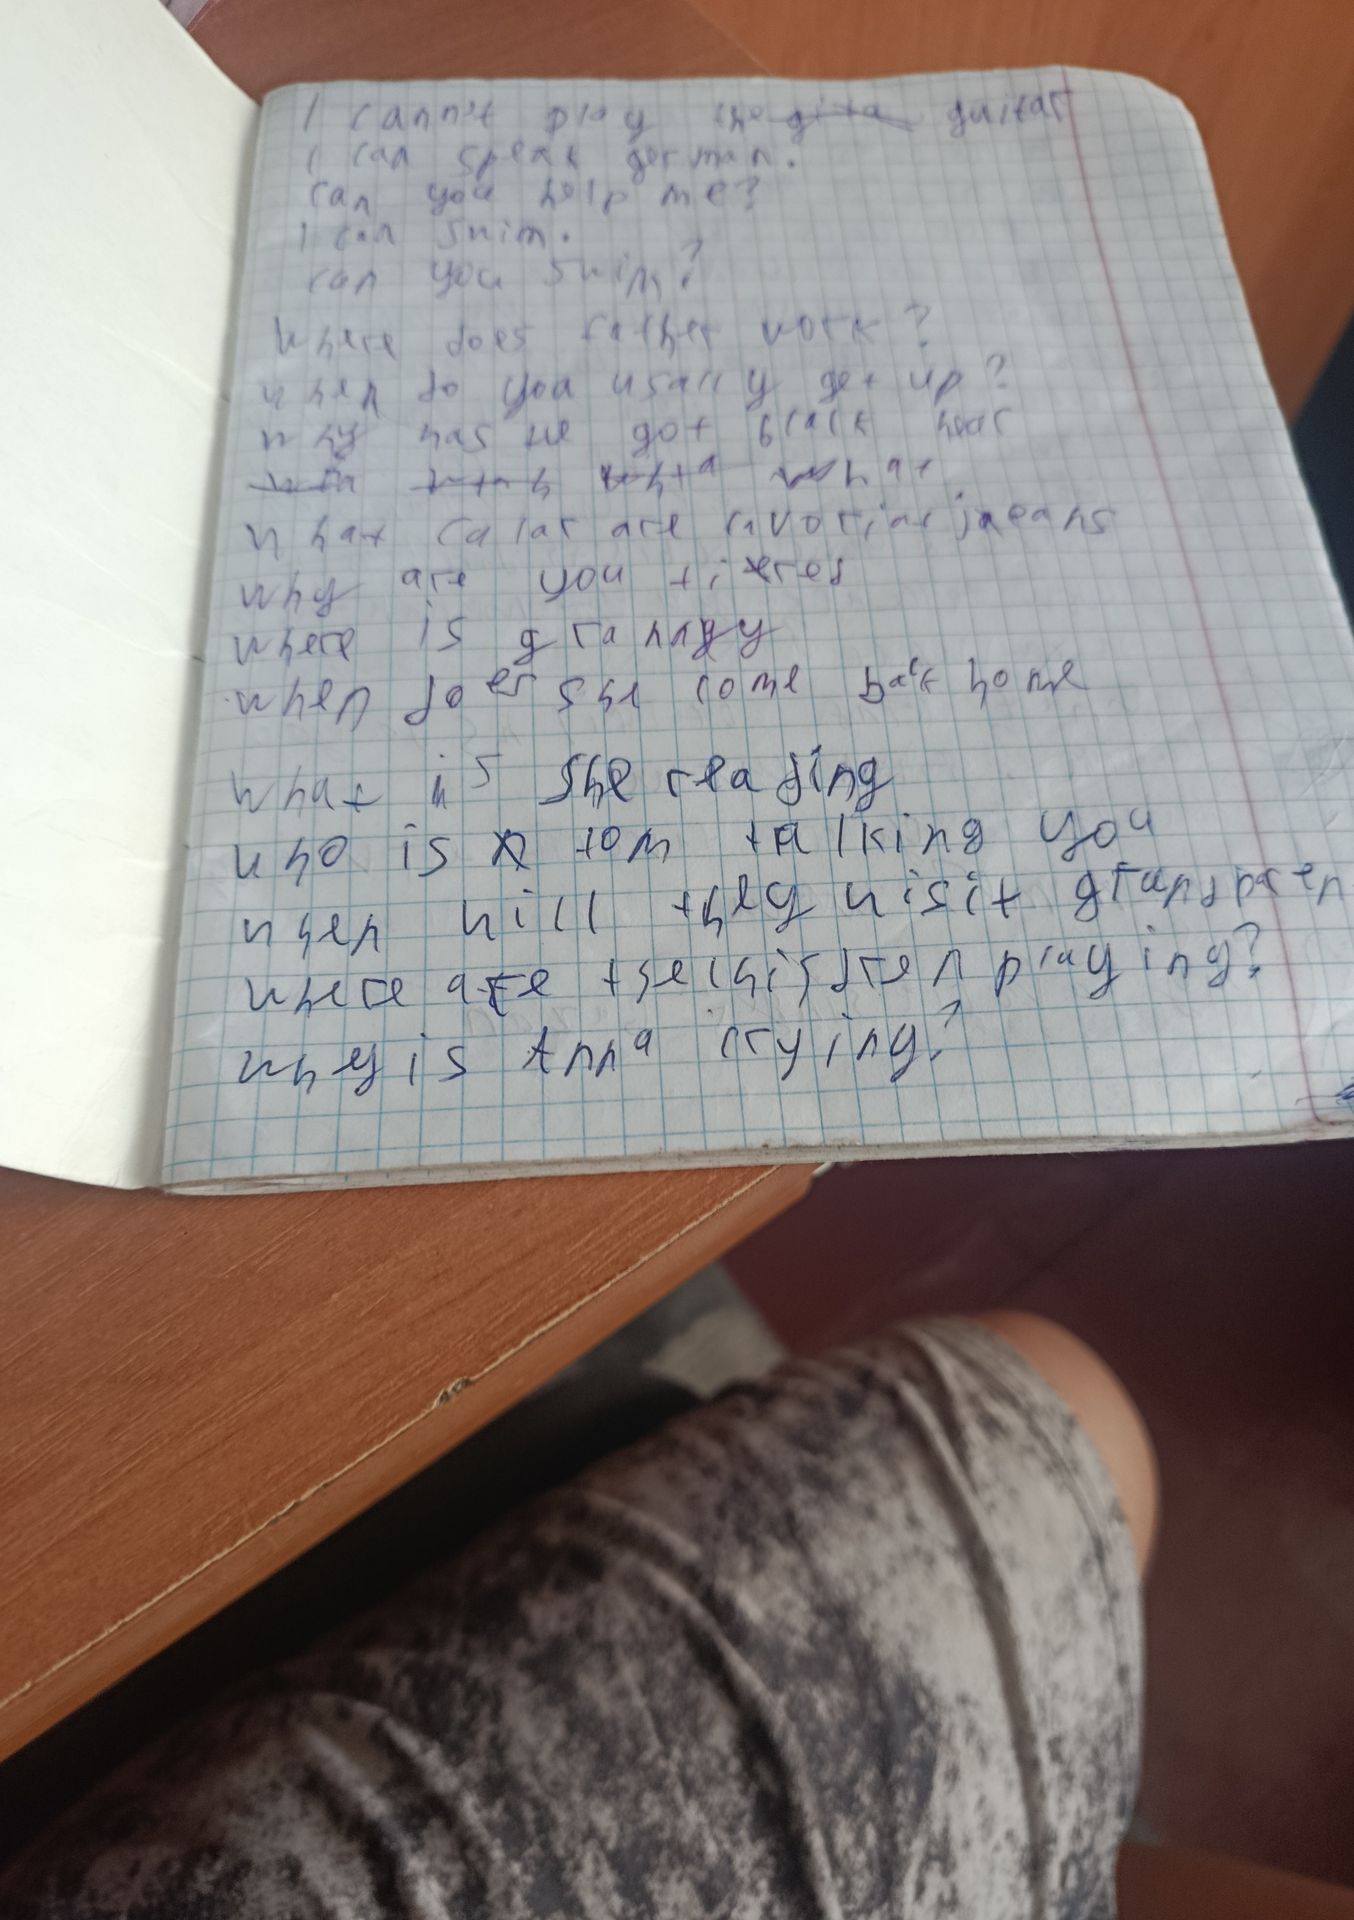 I cann't play the gita guitar
I can speak german.
can you help me?
I can swim.
can you swim?
where does father work?
when do you usally get up?
why has he got black hear
what
what calar are jneans
why are you
where is granndy
when does she come back home
what is she reading
who is tom talking you
when will they visit grandparen
where are the children playing?
why is Anna crying?